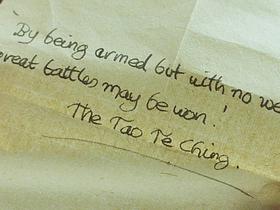 'By being armed but with no we
great battles may be won!
The Tao Te Ching.